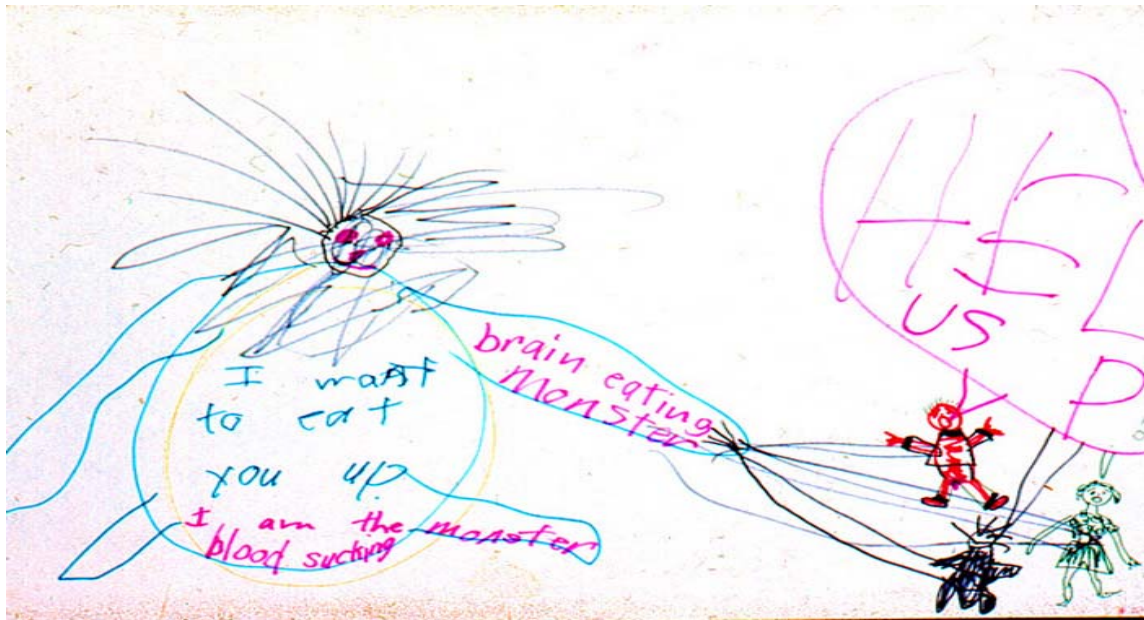 I want
to eat
you up
I am the monster
blood sucking
brain eating
Monster
HELP
US